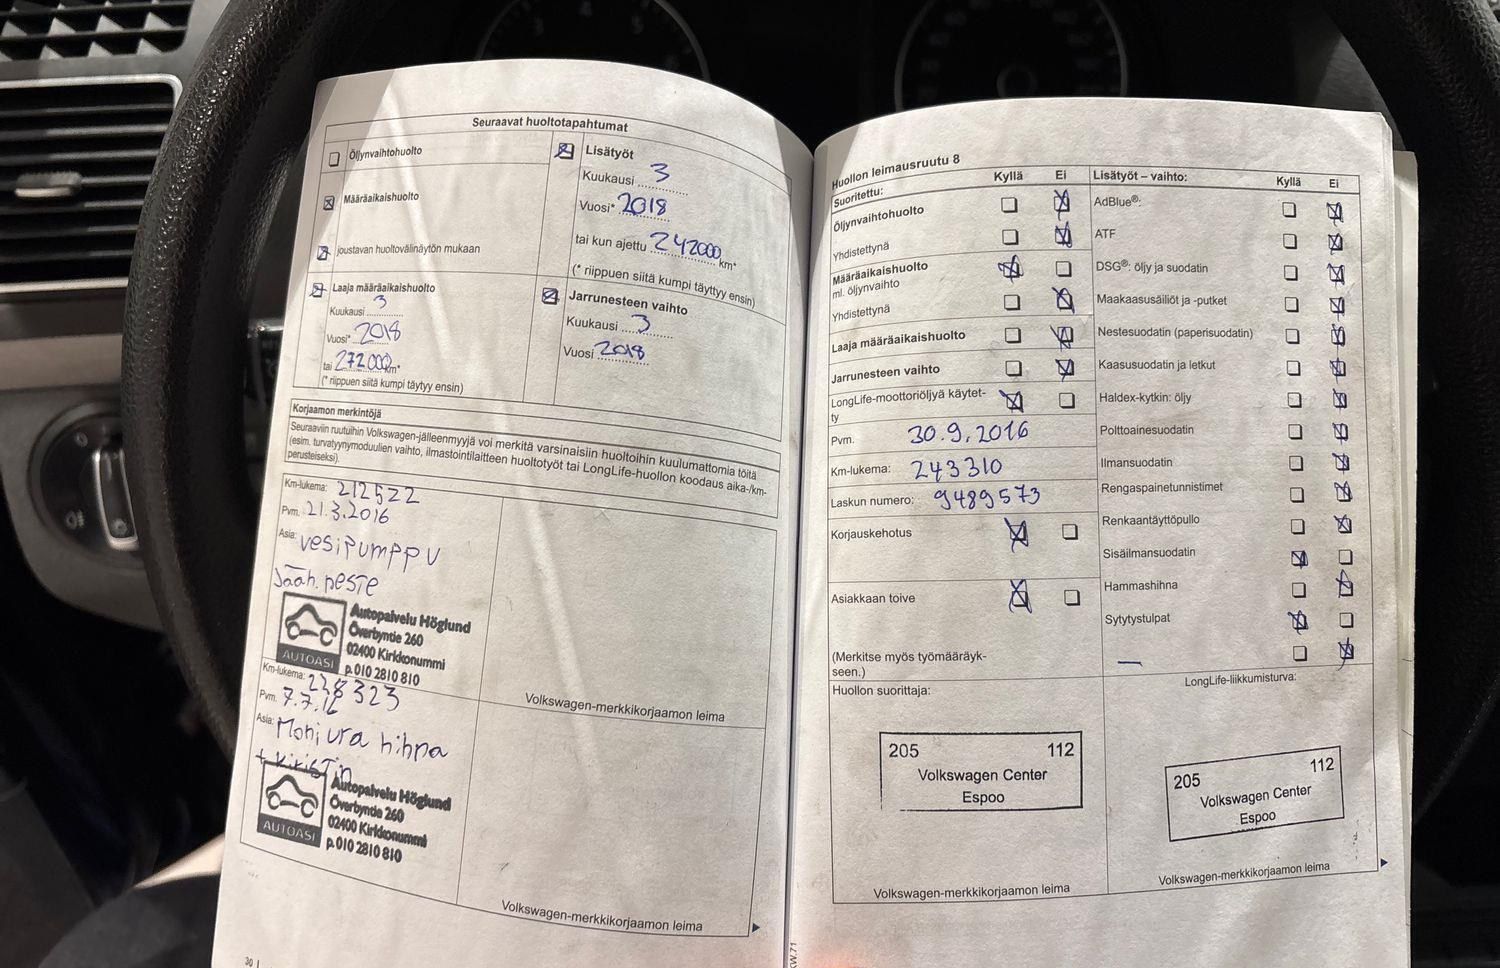 Seuraavat huoltotapahtumat
Öljynvaihtohuolto
Määräaikaishuolto
joustavan huoltovälinäytön mukaan
Lisätyöt
Kuukausi 3
Vuosi* 2018
tai kun ajettu 242000 km*
(* riippuen siitä kumpi täytyy ensin)
Laaja määräaikaishuolto
Kuukausi 3
Vuosi* 2018
tai 272000 km*
(* riippuen siitä kumpi täytyy ensin)
Jarrunesteen vaihto
Kuukausi 3
Vuosi 2018
Korjaamon merkintöjä
Seuraaviin ruutuihin Volkswagen-jälleenmyyjä voi merkitä varsinaisiin huoltoihin kuulumattomia töitä
(esim. turvatyynymoduulien vaihto, ilmastointilaitteen huoltotyöt tai LongLife-huollon koodaus aika-/km-
perusteiseksi).
Km-lukema: 212522
Pvm. 21.3.2016
Asia: vesipumppu
Jääh. neste
AUTOASI
Autopalvelu Höglund
Överbyntie 260
02400 Kirkkonummi
p. 010 2810 810
Volkswagen-merkkikorjaamon leima
Km-lukema: 228323
Pvm. 7.7.16
Asia: Moniura hihna
+ kiristin
AUTOASI
Autopalvelu Höglund
Överbyntie 260
02400 Kirkkonummi
p. 010 2810 810
Volkswagen-merkkikorjaamon leima
30
Huollon leimausruutu 8
Suoritettu: Kyllä Ei
Öljynvaihtohuolto
Yhdistettynä
Määräaikaishuolto
ml. öljynvaihto
Yhdistettynä
Laaja määräaikaishuolto
Jarrunesteen vaihto
LongLife-moottoriöljyä käytet-
ty
Pvm. 30.9.2016
Km-lukema: 243310
Laskun numero: 9489573
Korjauskehotus
Asiakkaan toive
(Merkitse myös työmääräyk-
seen.)
Lisätyöt – vaihto: Kyllä Ei
AdBlue®:
ATF
DSG®: öljy ja suodatin
Maakaasusäiliöt ja -putket
Nestesuodatin (paperisuodatin)
Kaasusuodatin ja letkut
Haldex-kytkin: öljy
Polttoainesuodatin
Ilmansuodatin
Rengaspainetunnistimet
Renkaantäyttöpullo
Sisäilmansuodatin
Hammashihna
Sytytystulpat
Huollon suorittaja:
205 112
Volkswagen Center
Espoo
Volkswagen-merkkikorjaamon leima
LongLife-liikkumisturva:
205 112
Volkswagen Center
Espoo
Volkswagen-merkkikorjaamon leima